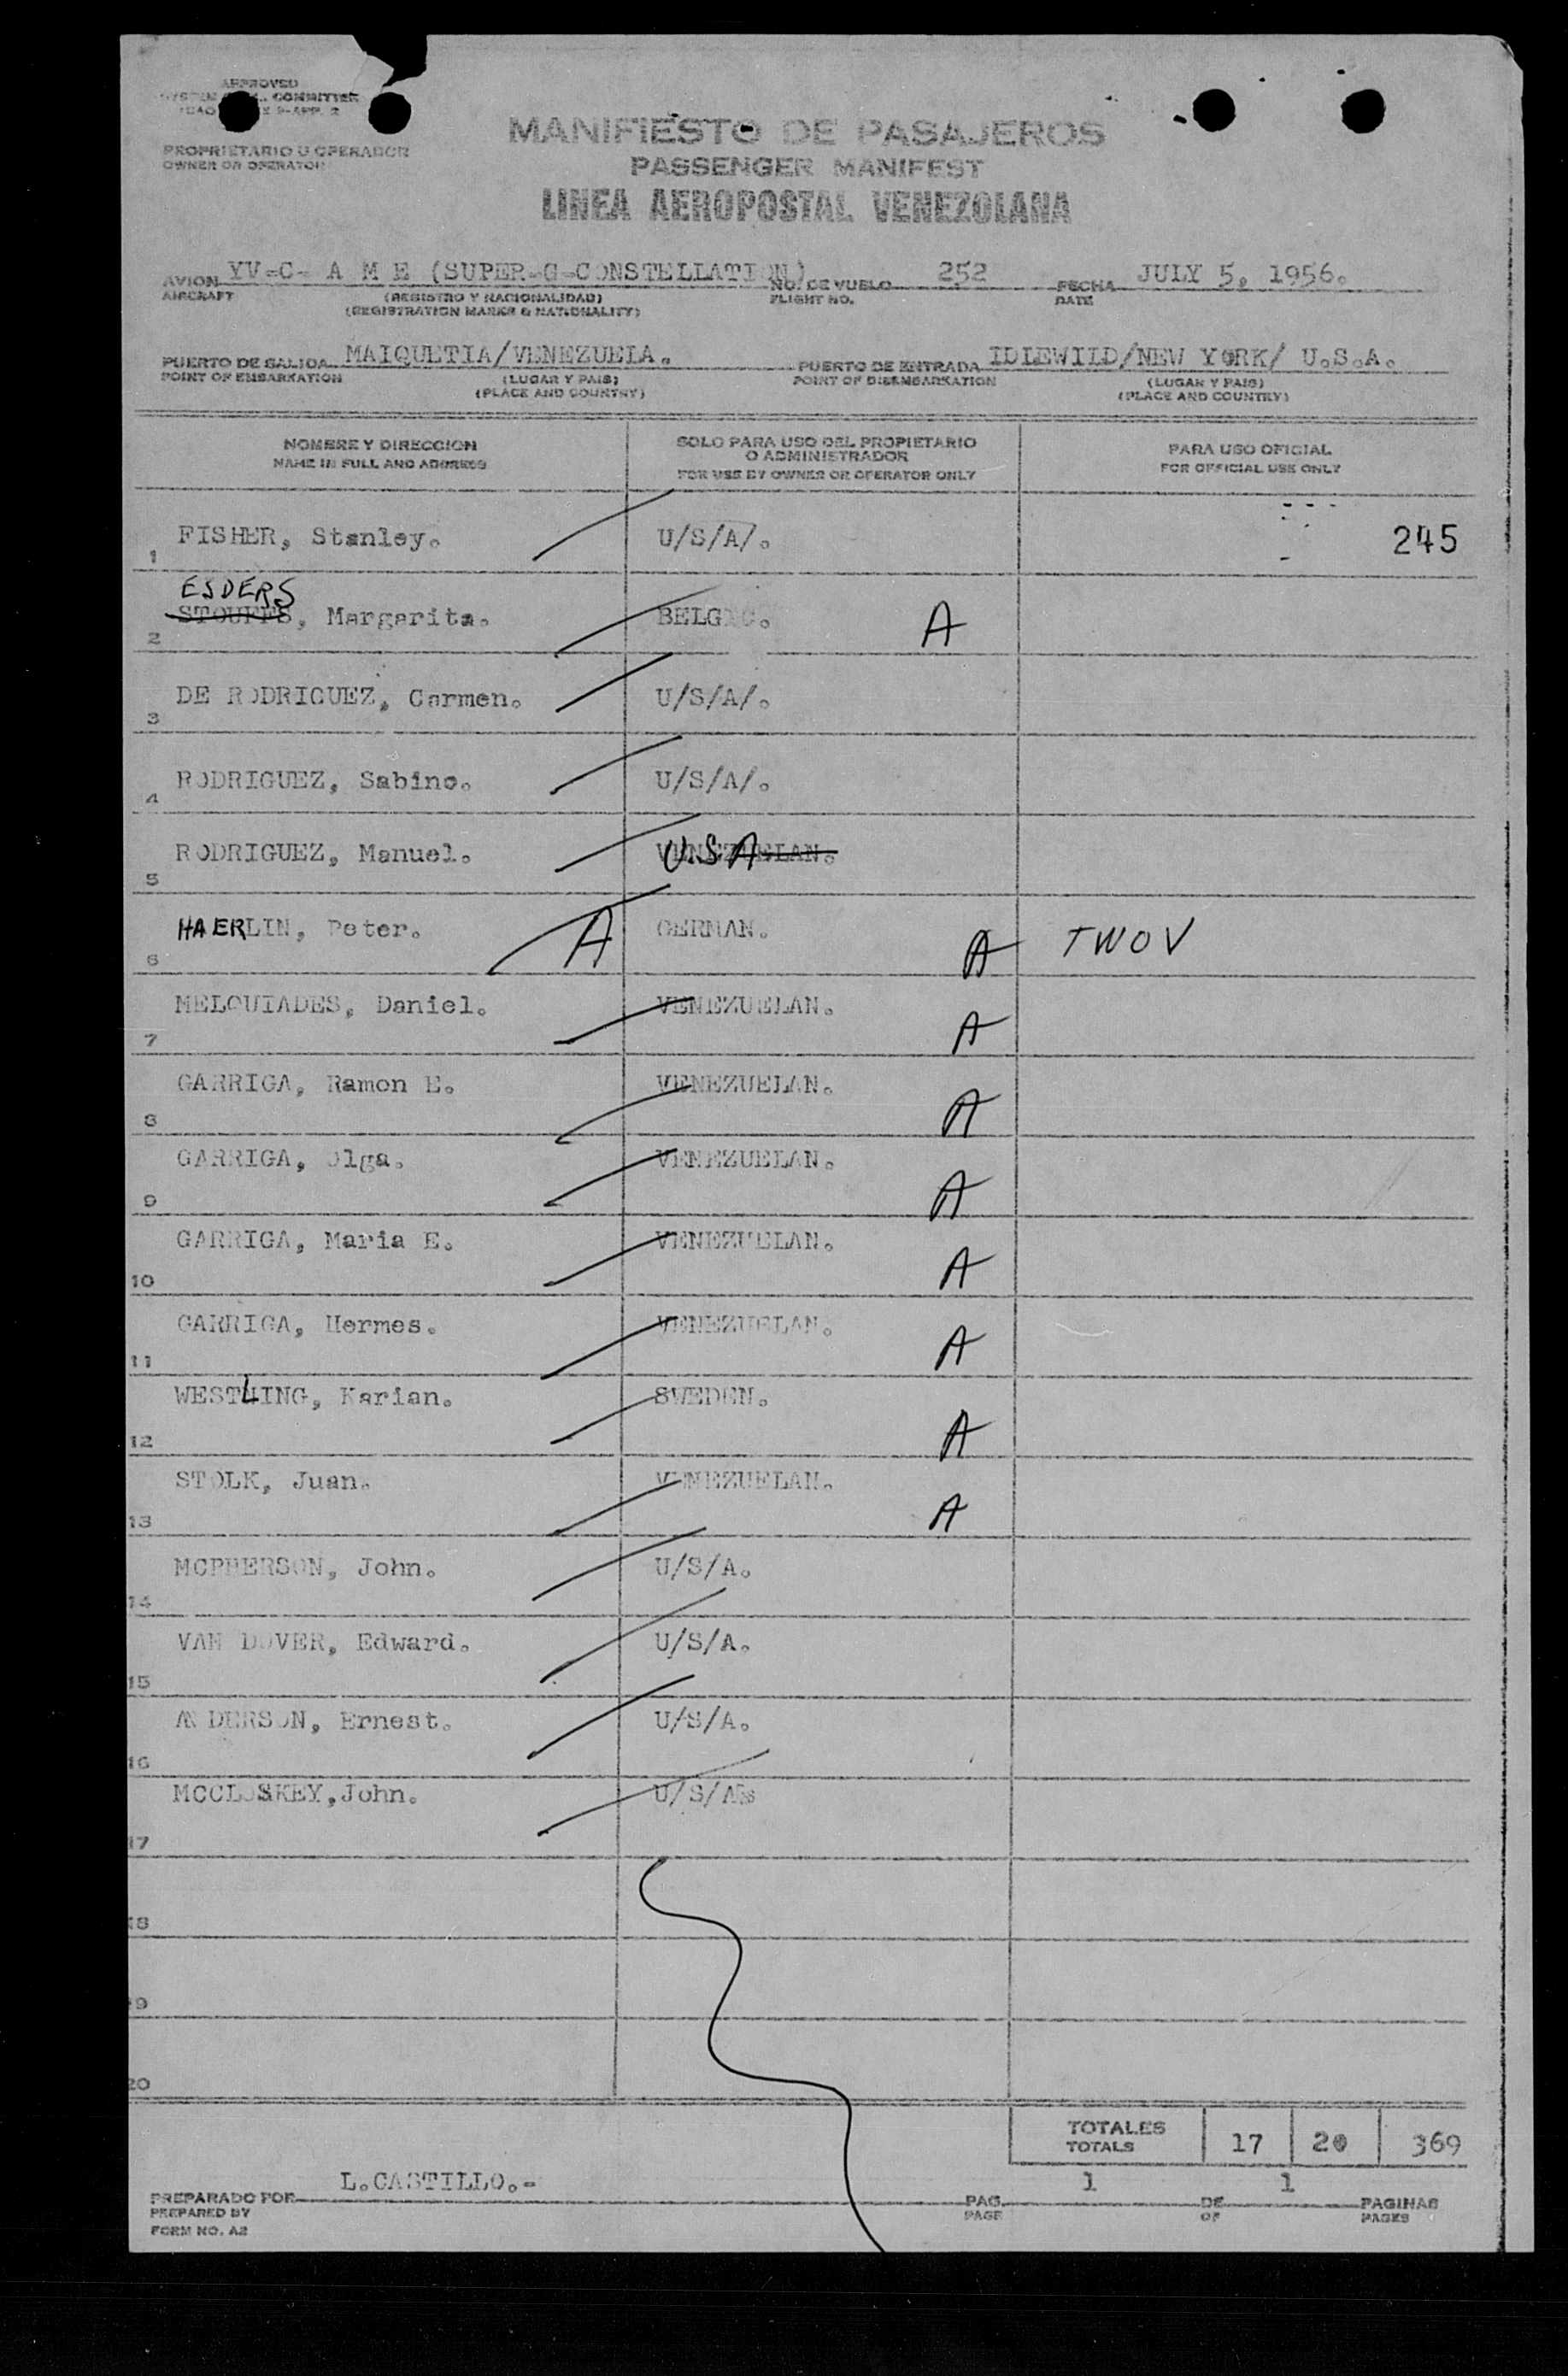 APPROVED
COMMITTEE
PROPRIETARIO U OPERADOR
OWNER OR OPERATOR
MANIFIESTO DE PASAJEROS
PASSENGER MANIFEST
LINEA AEROPOSTAL VENEZOLANA
AVION YV-C- A M E (SUPER-G-CONSTELLATION) NO. DE VUELO 252 FECHA JULY 5, 1956.
AIRCRAFT (REGISTRO Y NACIONALIDAD) FLIGHT NO. DATE
(REGISTRATION MARKS & NATIONALITY)
PUERTO DE SALIDA MAIQUETIA/VENEZUELA. PUERTO DE ENTRADA IDLEWILD/NEW YORK/ U.S.A.
POINT OF EMBARKATION (LUGAR Y PAIS) POINT OF DISEMBARKATION (LUGAR Y PAIS)
(PLACE AND COUNTRY) (PLACE AND COUNTRY)
NOMBRE Y DIRECCION SOLO PARA USO DEL PROPIETARIO O ADMINISTRADOR PARA USO OFICIAL
NAME IN FULL AND ADDRESS FOR USE BY OWNER OR OPERATOR ONLY FOR OFFICIAL USE ONLY
1 FISHER, Stanley. U/S/A/. 245
ESDERS
2 STOUFFS, Margarita. BELGIC. A
3 DE RODRIGUEZ, Carmen. U/S/A/.
4 RODRIGUEZ, Sabino. U/S/A/.
5 RODRIGUEZ, Manuel. VENEZUELAN. USA
6 HAERLIN, Peter. A GERMAN. A TWOV
7 MELQUIADES, Daniel. VENEZUELAN. A
8 GARRIGA, Ramon E. VENEZUELAN. A
9 GARRIGA, Olga. VENEZUELAN. A
10 GARRIGA, Maria E. VENEZUELAN. A
11 GARRIGA, Hermes. VENEZUELAN. A
12 WESTLING, Karian. SWEDEN. A
13 STOLK, Juan. VENEZUELAN. A
14 MCPHERSON, John. U/S/A.
15 VAN DOVER, Edward. U/S/A.
16 ANDERSON, Ernest. U/S/A.
17 MCCLOSKEY,John. U/S/A
18
19
20
TOTALES
TOTALS 17 20 369
PREPARADO POR L.CASTILLO.- PAG. 1 DE 1 PAGINAS
PREPARED BY PAGE OF PAGES
FORM NO. A2